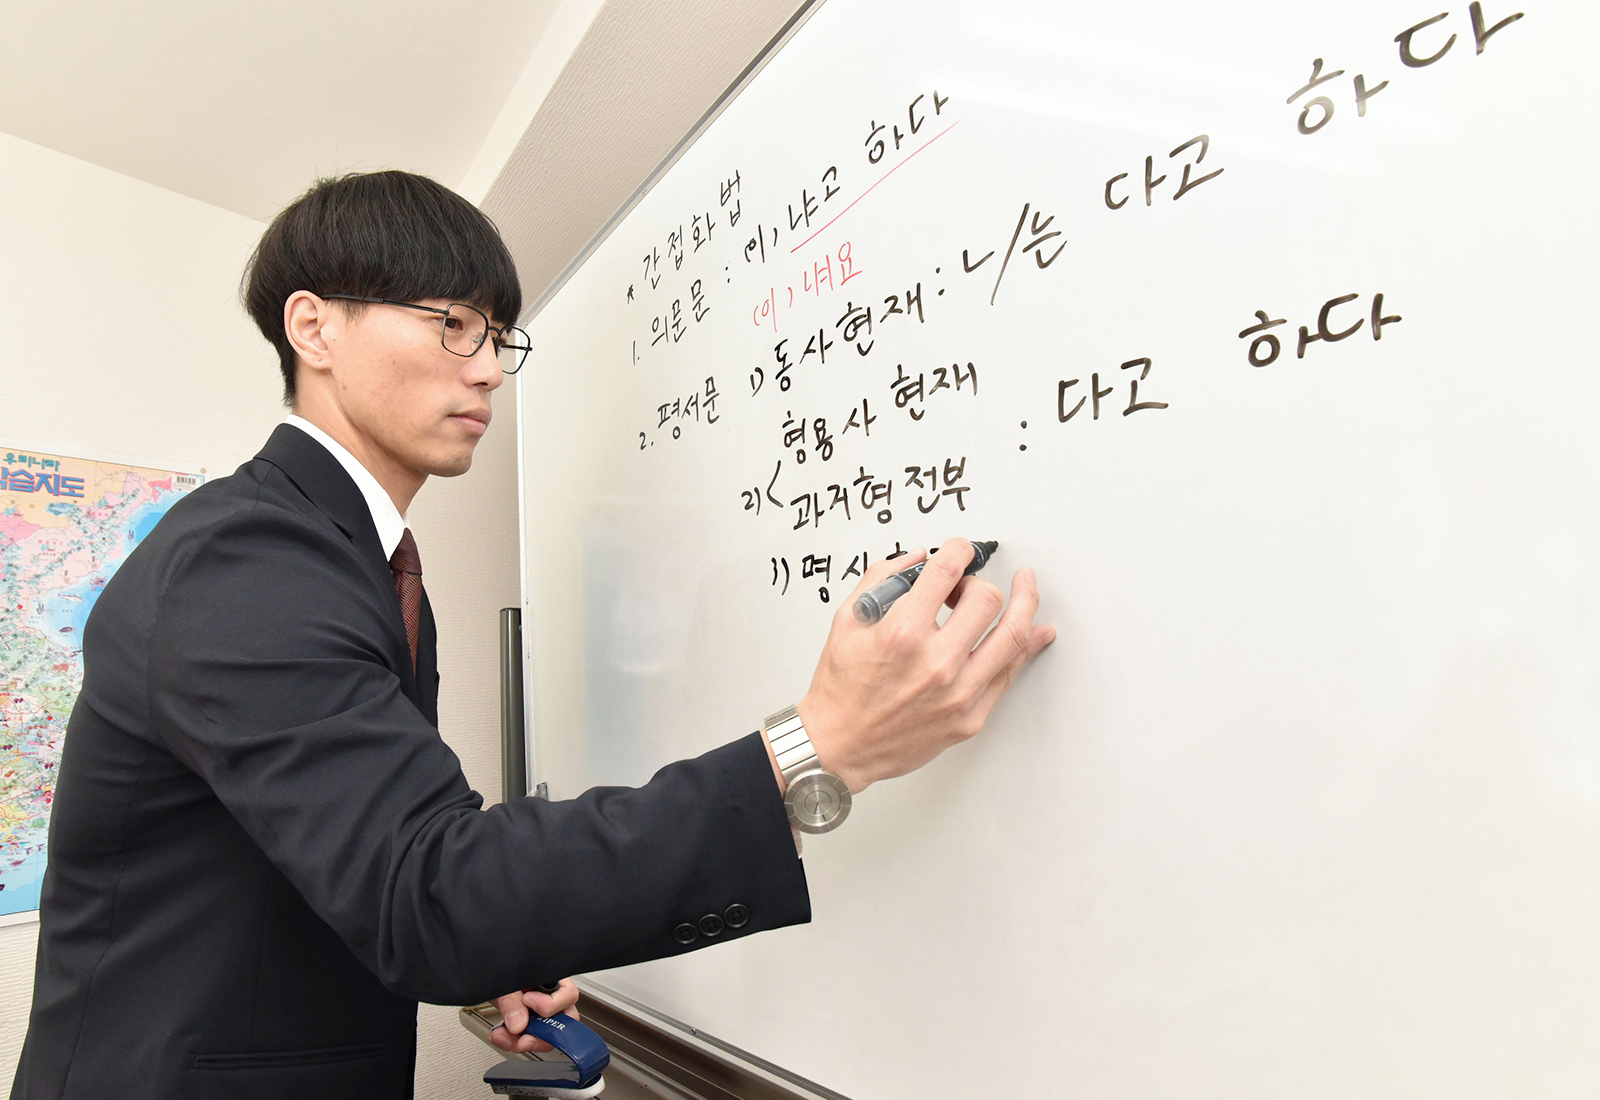 * 간접화법
1. 의문문 : (이) 냐고 하다
(이) 냐요
2. 평서문 1) 동사현재 : ㄴ/는 다고 하다
형용사 현재
2) < : 다고 하다
과거형 전부
1) 명사
우리나라
학습지도
WIPER